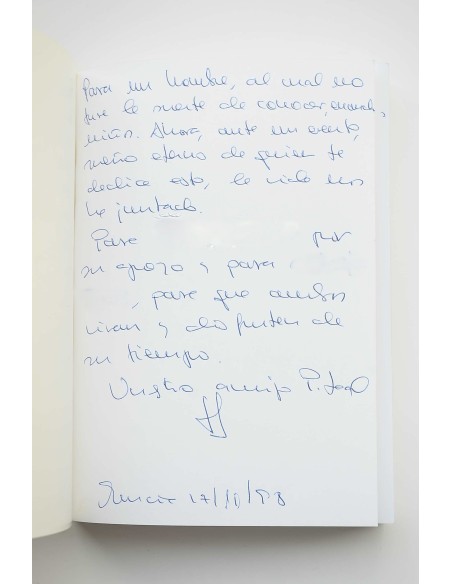 Para un hombre, al cual no
tuve la suerte de conocer, cuando,
niños. Ahora, ante un evento,
sueño eterno de quien te
dedica esto, la vida nos
ha juntado.
Para por
su apoyo y para
, para que ambos
vivan y disfruten de
su tiempo.
Vuestro amigo P.
17/10/98